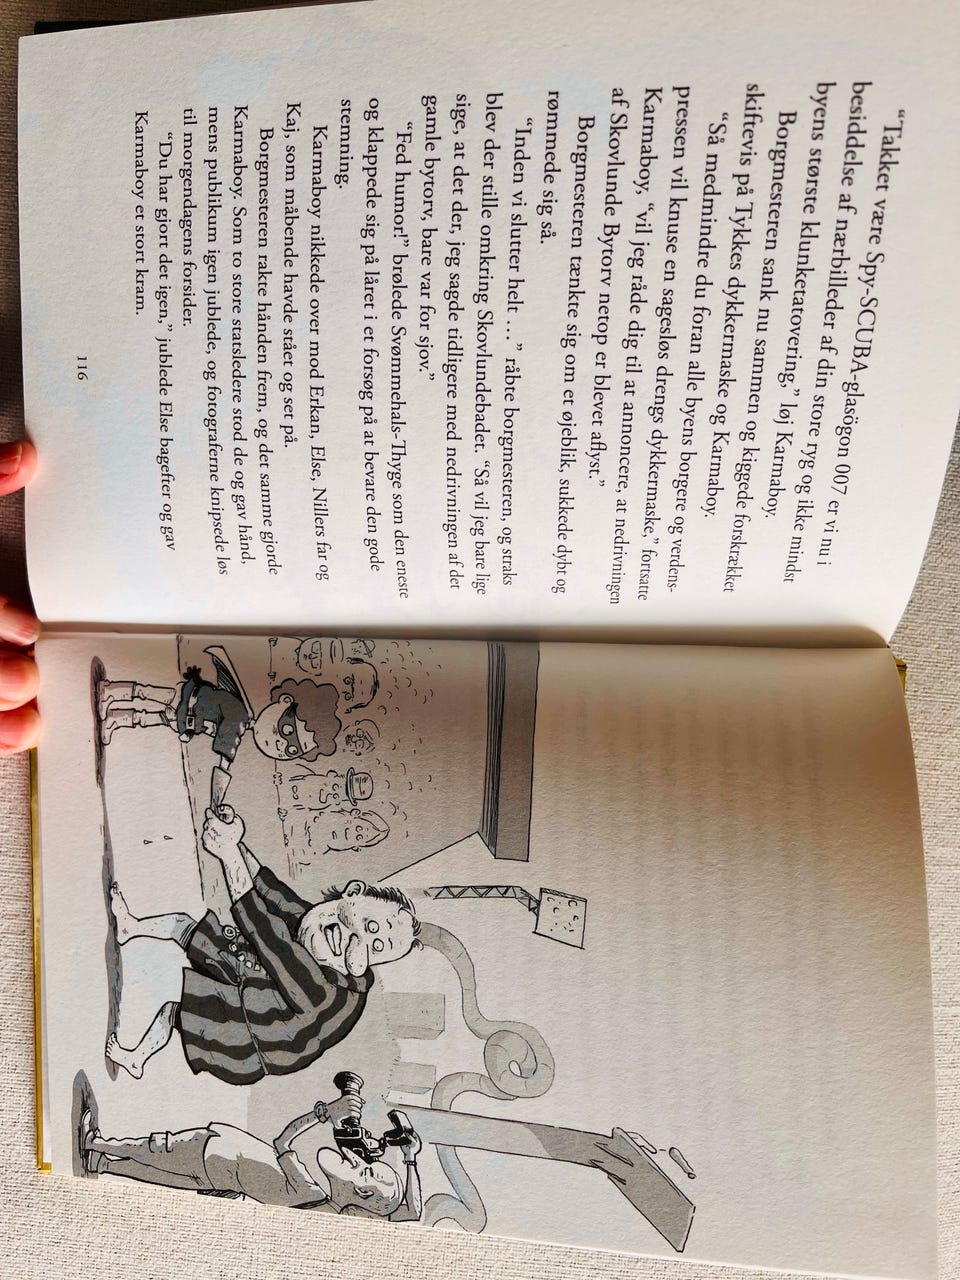 “Takket være Spy-SCUBA-glasögon 007 er vi nu i
besiddelse af nærbilleder af din store ryg og ikke mindst
byens største klunketatovering,” løj Karmaboy.
Borgmesteren sank nu sammen og kiggede forskrækket
skiftevis på Tykkes dykkermaske og Karmaboy.
“Så medmindre du foran alle byens borgere og verdens-
pressen vil knuse en sagesløs drengs dykkermaske,” fortsatte
Karmaboy, “vil jeg råde dig til at annoncere, at nedrivningen
af Skovlunde Bytorv netop er blevet aflyst.”
Borgmesteren tænkte sig om et øjeblik, sukkede dybt og
rømmede sig så.
“Inden vi slutter helt …” råbte borgmesteren, og straks
blev der stille omkring Skovlundebadet. “Så vil jeg bare lige
sige, at det der, jeg sagde tidligere med nedrivningen af det
gamle bytorv, bare var for sjov.”
“Fed humor!” brølede Svømmehals-Thyge som den eneste
og klappede sig på låret i et forsøg på at bevare den gode
stemning.
Karmaboy nikkede over mod Erkan, Else, Nillers far og
Kaj, som måbende havde stået og set på.
Borgmesteren rakte hånden frem, og det samme gjorde
Karmaboy. Som to store statsledere stod de og gav hånd,
mens publikum igen jublede, og fotograferne knipsede løs
til morgendagens forsider.
“Du har gjort det igen,” jublede Else bagefter og gav
Karmaboy et stort kram.
116